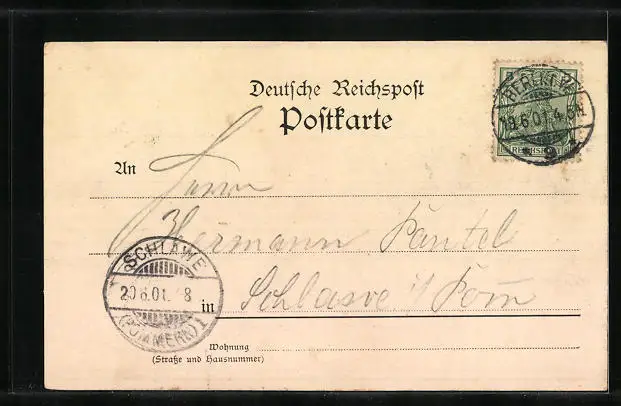 Deutsche Reichspost
Postkarte
BERLIN W.
19.6.01.4-5N
9
REICHSPOST
An Herrn
Hermann Pantel
in Schlawe i/ Pom
SCHLAWE
20.6.01. 8
(POMMERN) 1
Wohnung
(Straße und Hausnummer)